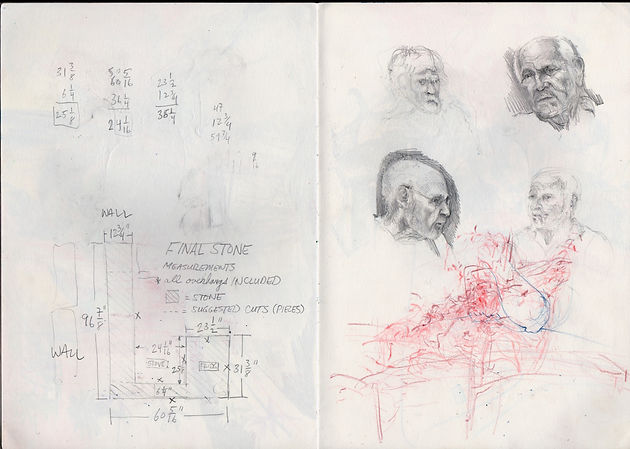 31 3/8
6 1/4
25 1/8
60 5/16
36 1/4
24 1/16
23 1/2
12 3/4
36 1/4
47
12 3/4
59 3/4
WALL
12 3/4"
FINAL STONE
MEASUREMENTS
* all overhangs INCLUDED
= STONE
--- = SUGGESTED CUTS (PIECES)
23 1/2"
96 7/8"
WALL
24 1/16"
STOVE
31 3/8"
6 1/4"
60 5/16"